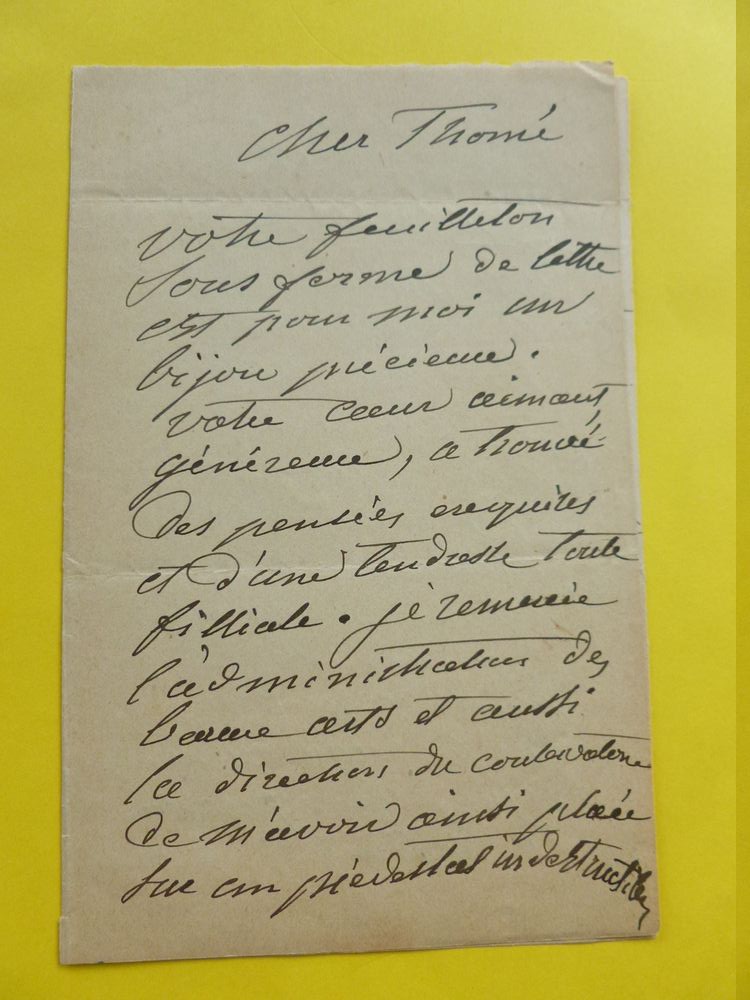 cher Thomé
votre feuilleton
sous forme de lettre
est pour moi un
bijou précieux.
votre cœur aimant
généreux, a trouvé
des pensées exquises
et d'une tendresse toute
filliale. je remercie
l'administration des
beaux arts et aussi
la direction du conservatoire
de m'avoir ainsi placée
sur un piédestal indestructible,